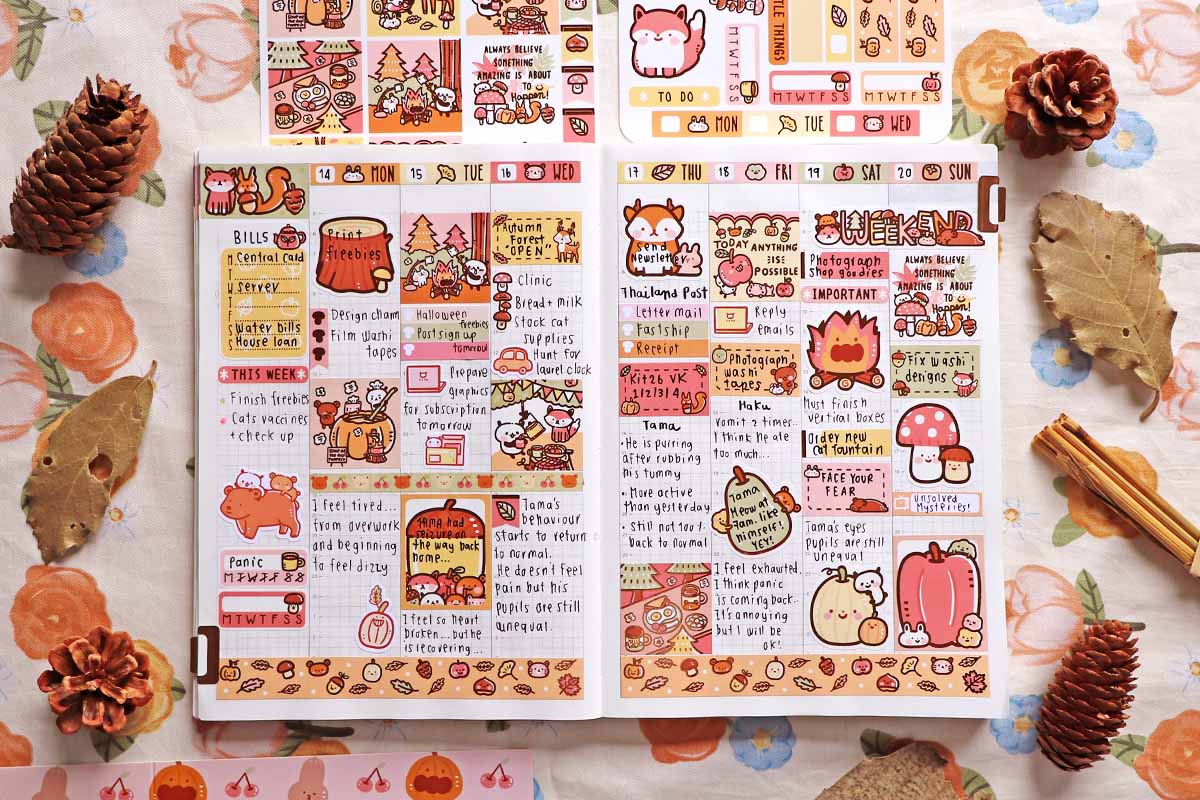 ALWAYS BELIEVE
SOMETHING
AMAZING IS ABOUT
TO
Happen!
TO DO
M
T
W
T
F
S
S
TLE THINGS
M T W T F S S
M T W T F S S
MON
TUE
WED
BILLS
M Central Card
T
W Server
T
F
S Water bills
S House loan
THIS WEEK
Finish freebies
Cats vaccines
+ check up
Panic
M T W T F S S
M T W T F S S
14 MON
Print
freebies
Design charm
Film Washi
tapes
I feel tired...
from overwork
and beginning
to feel dizzy
15 TUE
Halloween
freebies
Post sign up
tomorrow
Prepare
graphics
for subscription
tomorrow
TAMA had
seizure on
the way back
home...
I feel so heart
broken... but he
is recovering...
16 WED
Autumn
Forest
"OPEN"
Clinic
Bread + milk
Stock cat
supplies
Hunt for
laurel clock
Tama's
behaviour
starts to return
to normal.
He doesn't feel
pain but his
pupils are still
unequal.
17 THU
Send
Newsletter
Thailand Post
Letter mail
Fastship
Receipt
Kit26 VK
1/2/3/4
Tama
• He is purring
after rubbing
his tummy
• More active
than yesterday
• Still not 100%
back to normal
18 FRI
TODAY ANYTHING
ELSE
POSSIBLE
Reply
emails
Photograph
washi
tapes
Haku
Vomit 2 times..
I think he ate
too much...
Tama
Meow at
7am. like
himself!
YEY!
I feel exhausted.
I think panic
is coming back..
It's annoying
but I will be
ok!
19 SAT
WEEKEND
Photograph
shop goodies
IMPORTANT
Must finish
vertical boxes
Order new
cat fountain
FACE YOUR
FEAR
Tama's eyes
pupils are still
unequal
20 SUN
ALWAYS BELIEVE
SOMETHING
AMAZING IS ABOUT
TO
Happen!
Fix washi
designs
Unsolved
Mysteries!